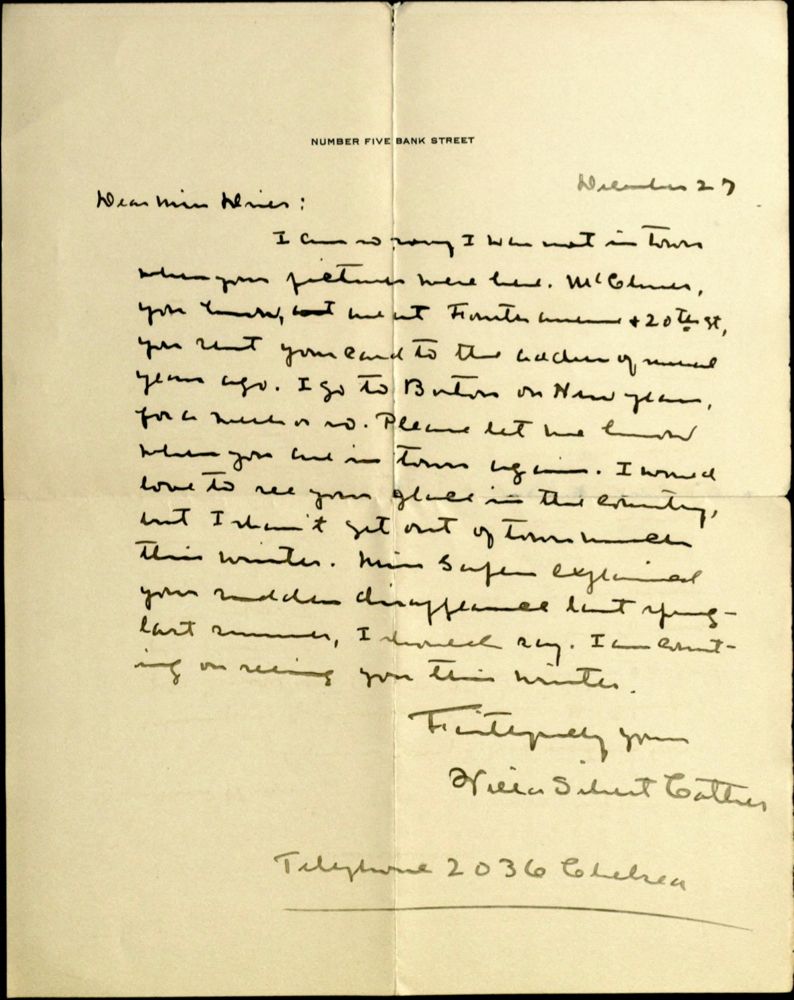 NUMBER FIVE BANK STREET
December 27
Dear Miss
I am so sorry I was not in town
when your pictures were here. McClures,
you know, are at Fourth avenue & 20th st,
you sent your card to the address of several
years ago. I go to Boston on New years,
for a week or so. Please let me know
when you are in town again. I would
love to see your place in the country,
but I shan't get out of town much
this winter. Miss explained
your sudden disappearance last spring -
last summer, I should say. I am count-
ing on seeing you this winter.
Faithfully yours
Willa Sibert Cather
Telephone 2036 Chelsea